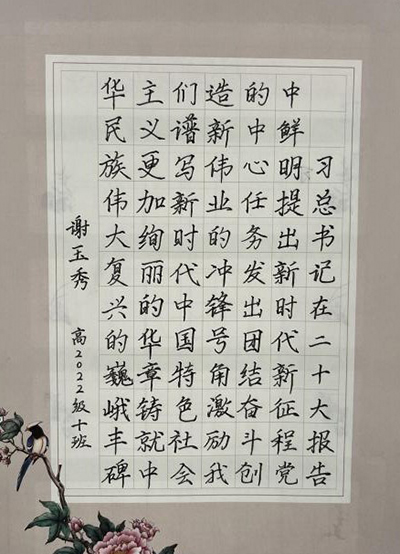 习总书记在二十大报告
中鲜明提出新时代新征程党
的中心任务发出团结奋斗创
造新伟业的冲锋号角激励我
们谱写新时代中国特色社会
主义更加绚丽的华章铸就中
华民族伟大复兴的巍峨丰碑
谢玉秀 高2022级十班